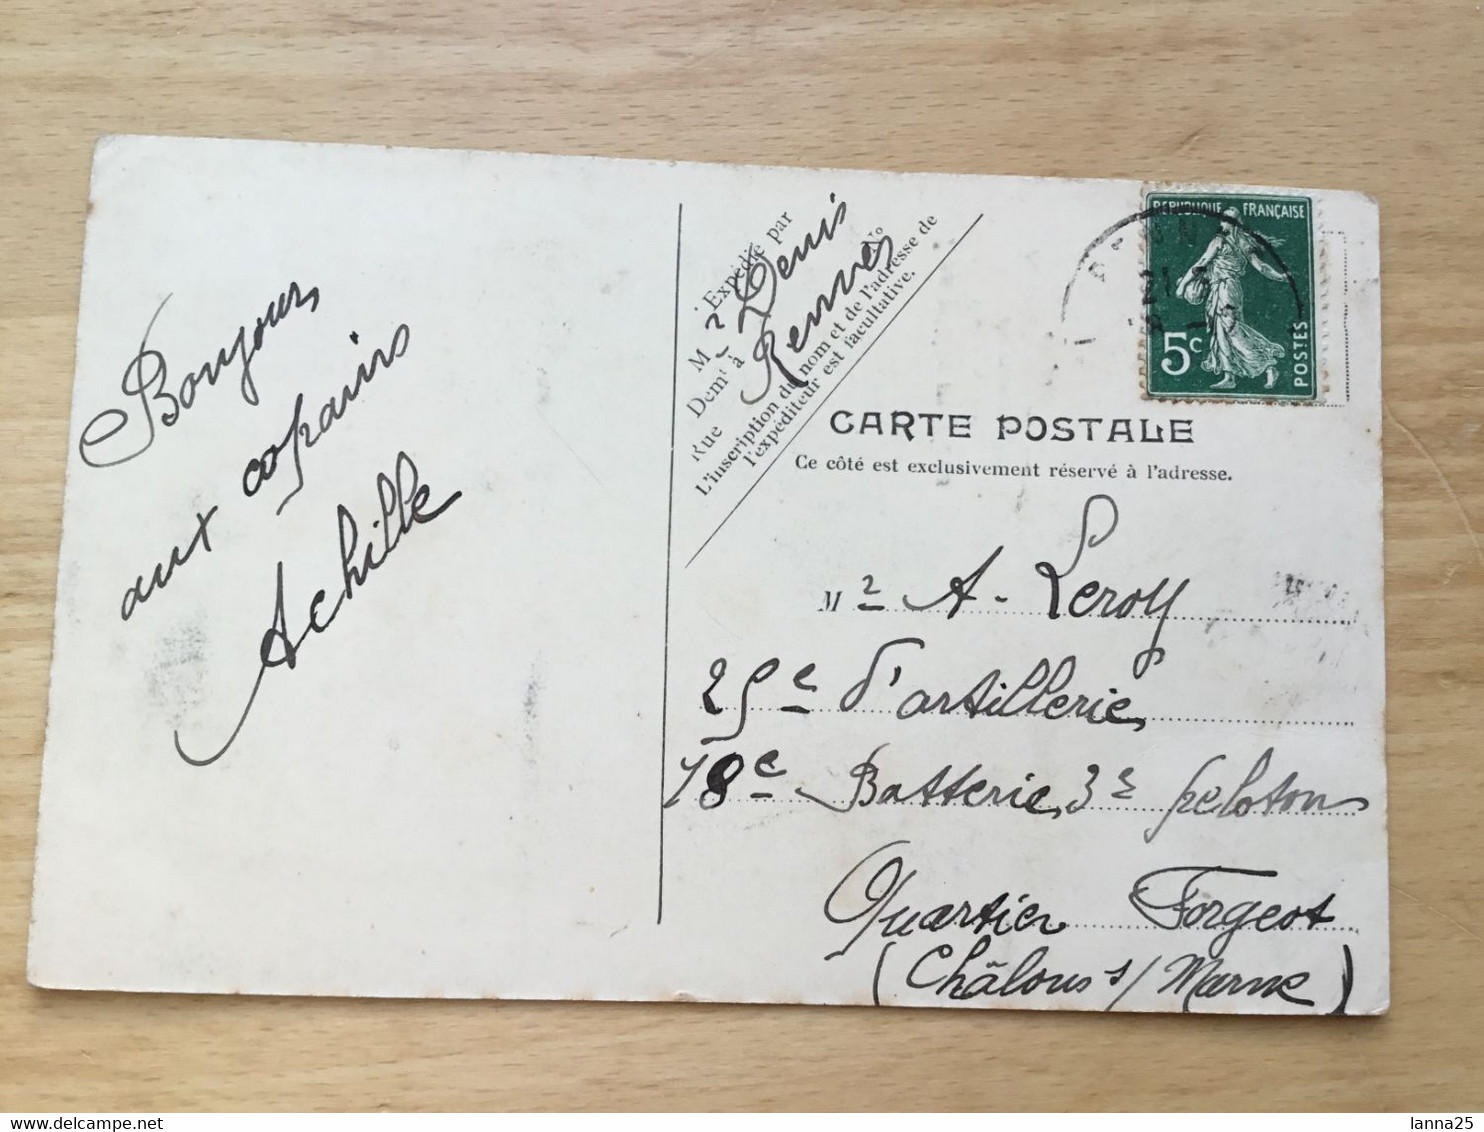 Bonjour
aux copains
Achille
Expédié par
M r Denis
Demt à Rennes
Rue No
L'inscription du nom et de l'adresse de
l'expéditeur est facultative.
RÉPUBLIQUE FRANÇAISE
5c
POSTES
21
CARTE POSTALE
Ce côté est exclusivement réservé à l'adresse.
M r A. Leroy
25e d'artillerie
18e Batterie 3e peloton
Quartier Forgeot
(Châlons s/ Marne)
lanna25